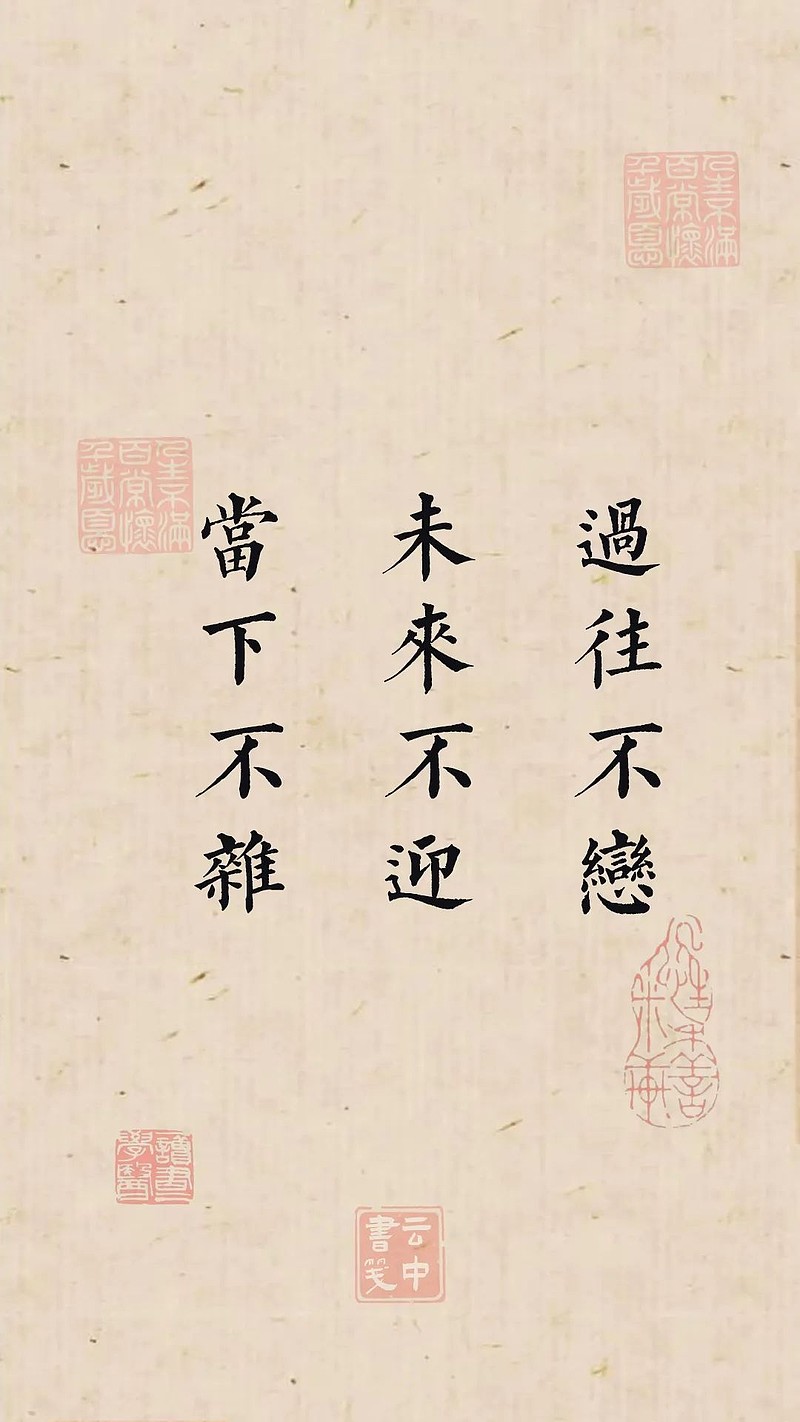 過往不戀
未來不迎
當下不雜
云中
書笺